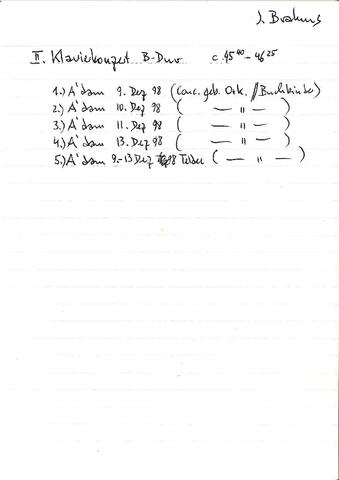 J. Brahms
II. Klavierkonzert B-Dur c. 45⁴⁰ – 46²⁵
1.) A'dam 9. Dez 98 (Conc. geb. Ork. // Buchbinder)
2.) A'dam 10. Dez 98 ( — " — )
3.) A'dam 11. Dez 98 ( — " — )
4.) A'dam 13. Dez 98 ( — " — )
5.) A'dam 9.-13 Dez 98 ( — " — )